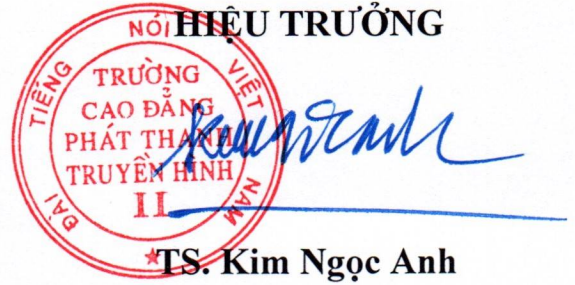 HIỆU TRƯỞNG
ĐÀI TIẾNG NÓI VIỆT NAM
TRƯỜNG
CAO ĐẲNG
PHÁT THANH
TRUYỀN HÌNH
II
TS. Kim Ngọc Anh